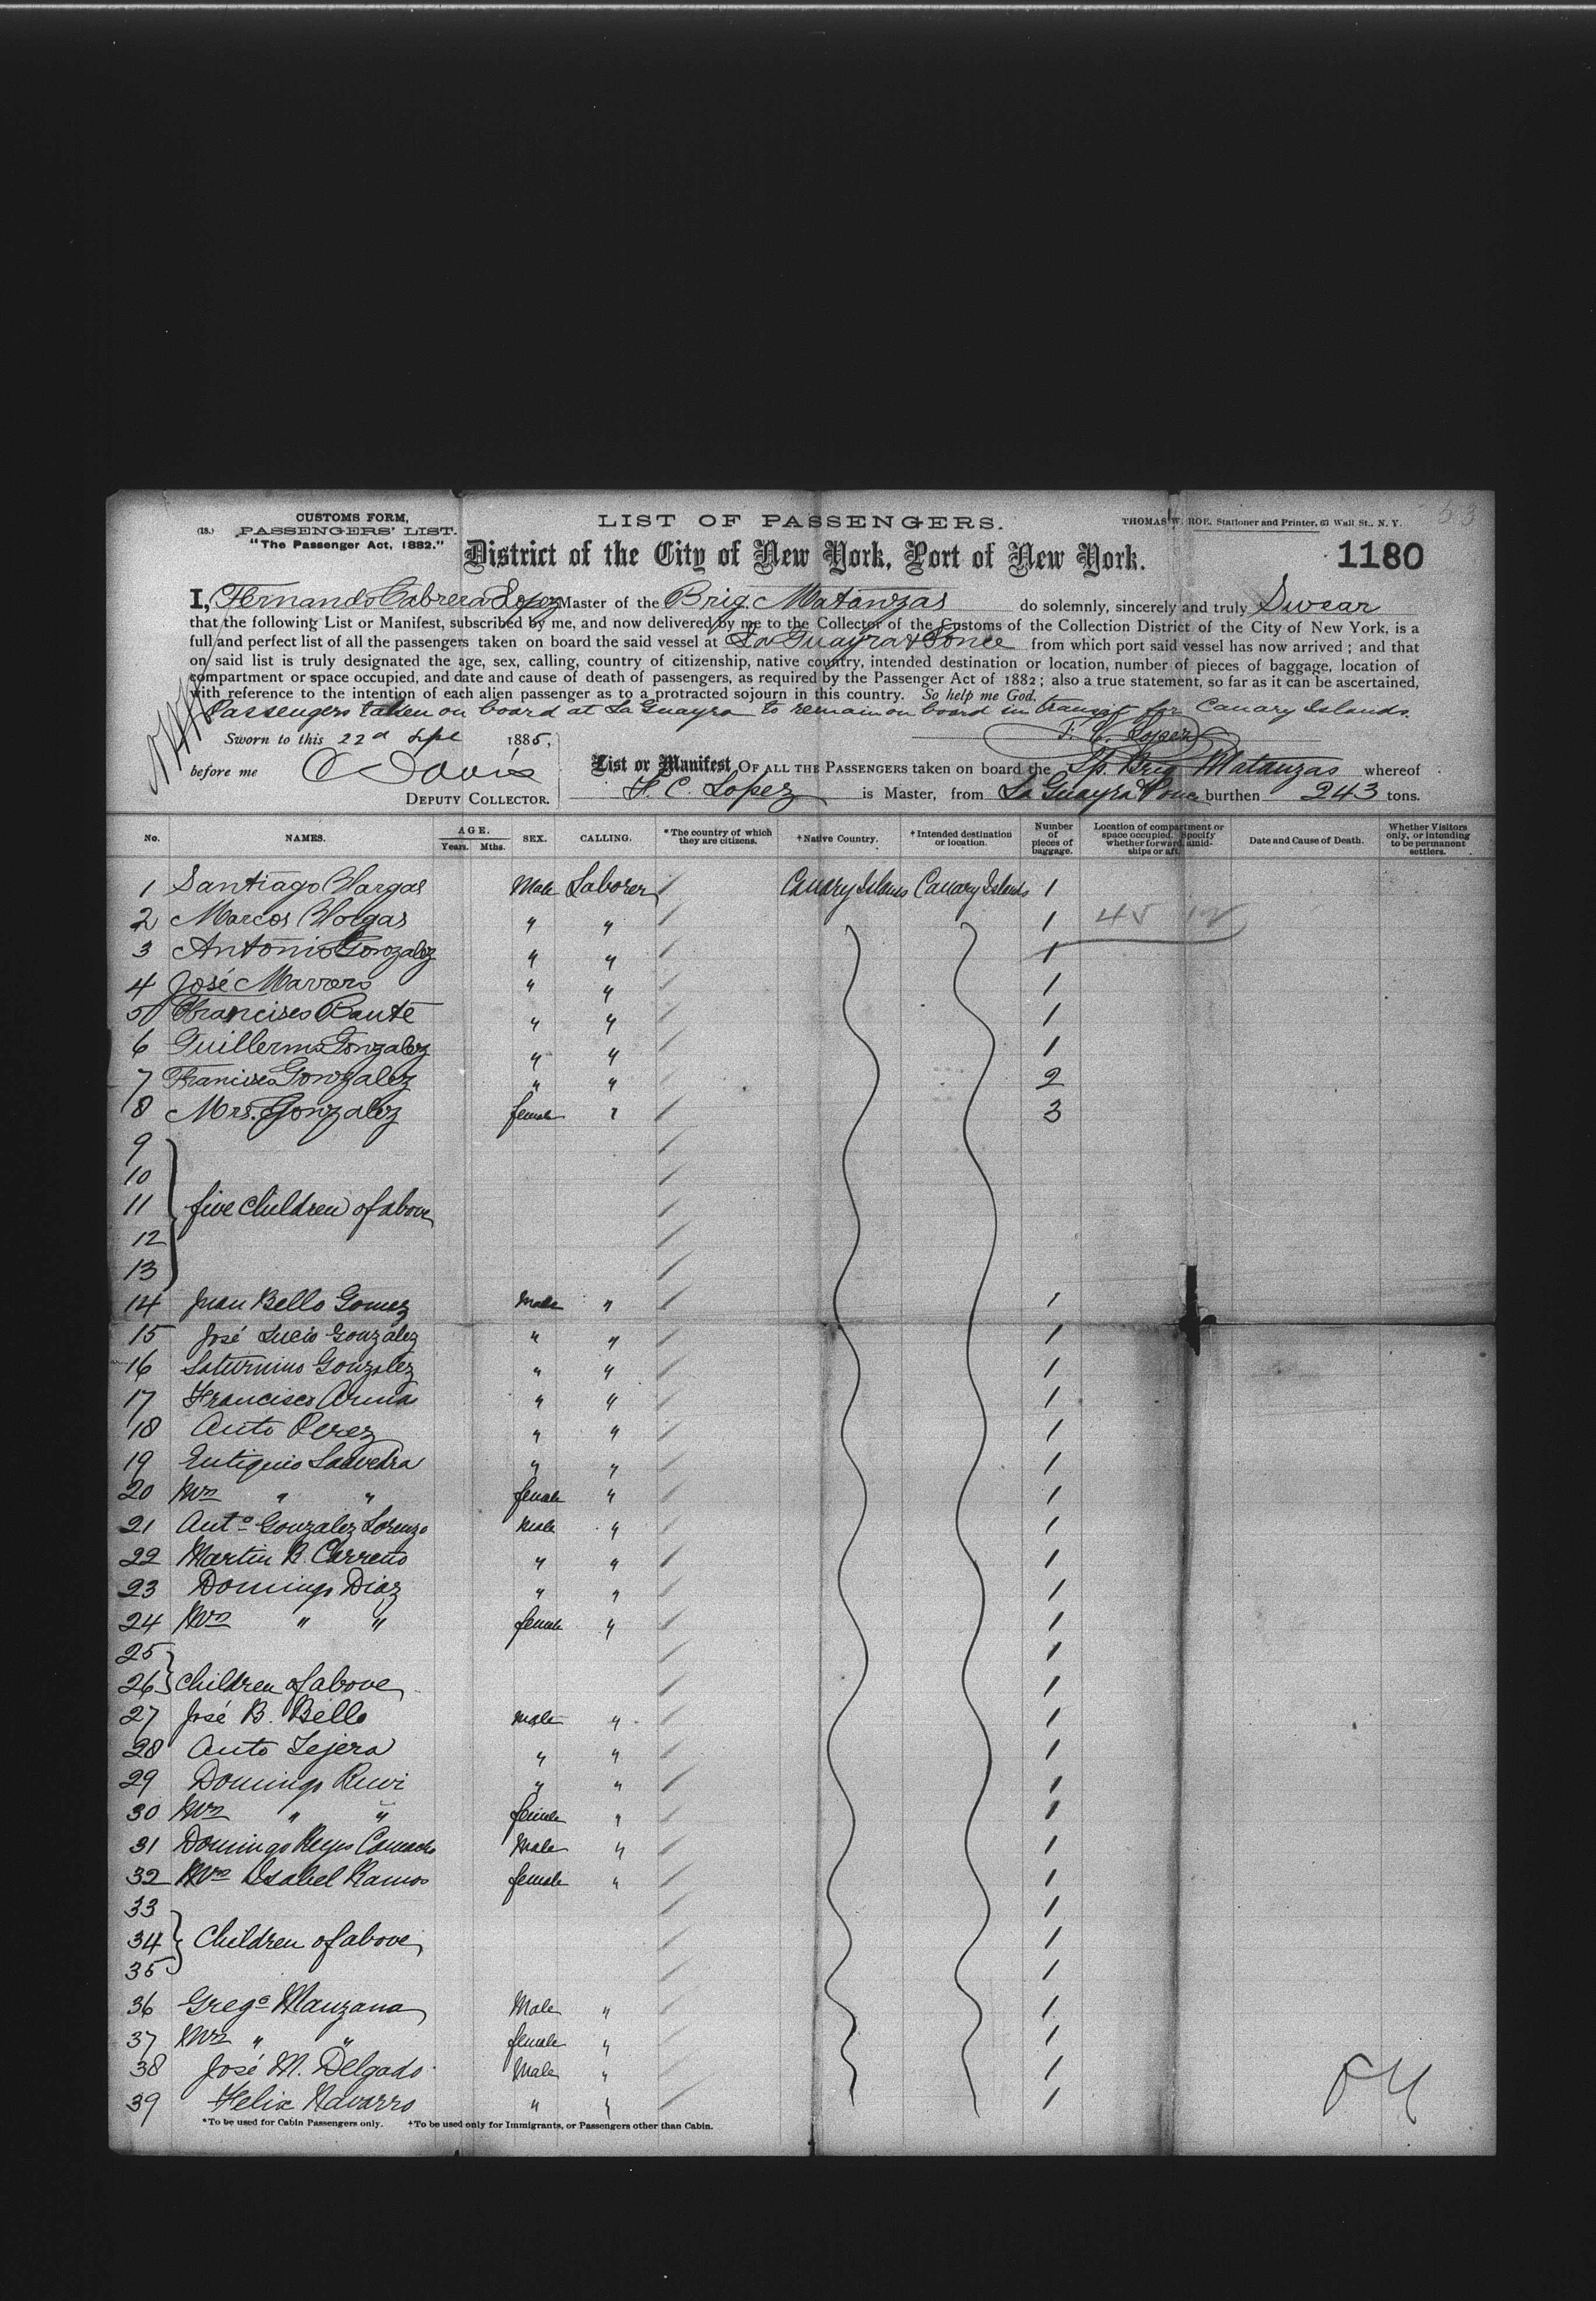 53
CUSTOMS FORM,
(18.) PASSENGERS' LIST.
"The Passenger Act, 1882."
LIST OF PASSENGERS.
THOMAS W. ROE, Stationer and Printer, 63 Wall St., N. Y.
District of the City of New York, Port of New York.
1180
I, Fernando Cabrera Lopez Master of the Brig. Matanzas do solemnly, sincerely and truly Swear
that the following List or Manifest, subscribed by me, and now delivered by me to the Collector of the Customs of the Collection District of the City of New York, is a
full and perfect list of all the passengers taken on board the said vessel at La Guayra & Ponce from which port said vessel has now arrived; and that
on said list is truly designated the age, sex, calling, country of citizenship, native country, intended destination or location, number of pieces of baggage, location of
compartment or space occupied, and date and cause of death of passengers, as required by the Passenger Act of 1882; also a true statement, so far as it can be ascertained,
with reference to the intention of each alien passenger as to a protracted sojourn in this country. So help me God.
Passengers taken on board at La Guayra to remain on board in transit for Canary Islands.
Sworn to this 22d Sept 1885,
F. C. Lopez
before me C Davis
DEPUTY COLLECTOR.
List or Manifest OF ALL THE PASSENGERS taken on board the Sp. Brig Matanzas whereof
F. C. Lopez is Master, from La Guayra & Ponce burthen 243 tons.
No. NAMES. AGE. Years. Mths. SEX. CALLING. *The country of which they are citizens. †Native Country. †Intended destination or location. Number of pieces of baggage. Location of compartment or space occupied. Specify whether forward, amidships or aft. Date and Cause of Death. Whether Visitors only, or intending to be permanent settlers.
1 Santiago Vargas Male Laborer / Canary Islands Canary Islands 1
2 Marcos Vargas " " / 1 45
3 Antonio Gonzalez " " / 1
4 José Marrero " " / 1
5 Francisco Baute " " / 1
6 Guillermo Gonzalez " " / 1
7 Francisco Gonzalez " " / 2
8 Mrs. Gonzalez female " / 3
9 /
10 /
11 five children of above /
12 /
13 /
14 Juan Bello Gomez Male " / 1
15 José Lucio Gonzalez " " / 1
16 Saturnino Gonzalez " " / 1
17 Francisco Armas " " / 1
18 Anto Perez " " / 1
19 Eutiquio Saavedra " " / 1
20 Mrs " " female " / 1
21 Anto Gonzalez Lorenzo Male " / 1
22 Martin R. Carreño " " / 1
23 Domingo Diaz " " / 1
24 Mrs " " female " / 1
25 / 1
26 children of above / 1
27 José B. Bello Male " / 1
28 Anto Tejera " " / 1
29 Domingo " " / 1
30 Mrs " " female " / 1
31 Domingo Reyes Camacho Male " / 1
32 Mrs Isabel Ramos female " / 1
33 / 1
34 Children of above / 1
35 / 1
36 Grego Manzana Male " / 1
37 Mrs " " female " / 1
38 José M. Delgado Male " / 1
39 Felix Navarro " " / 1
*To be used for Cabin Passengers only. †To be used only for Immigrants, or Passengers other than Cabin.